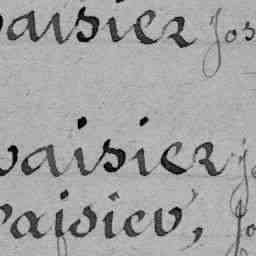 vaisier Jos
vaisier J
vaisier, Jo